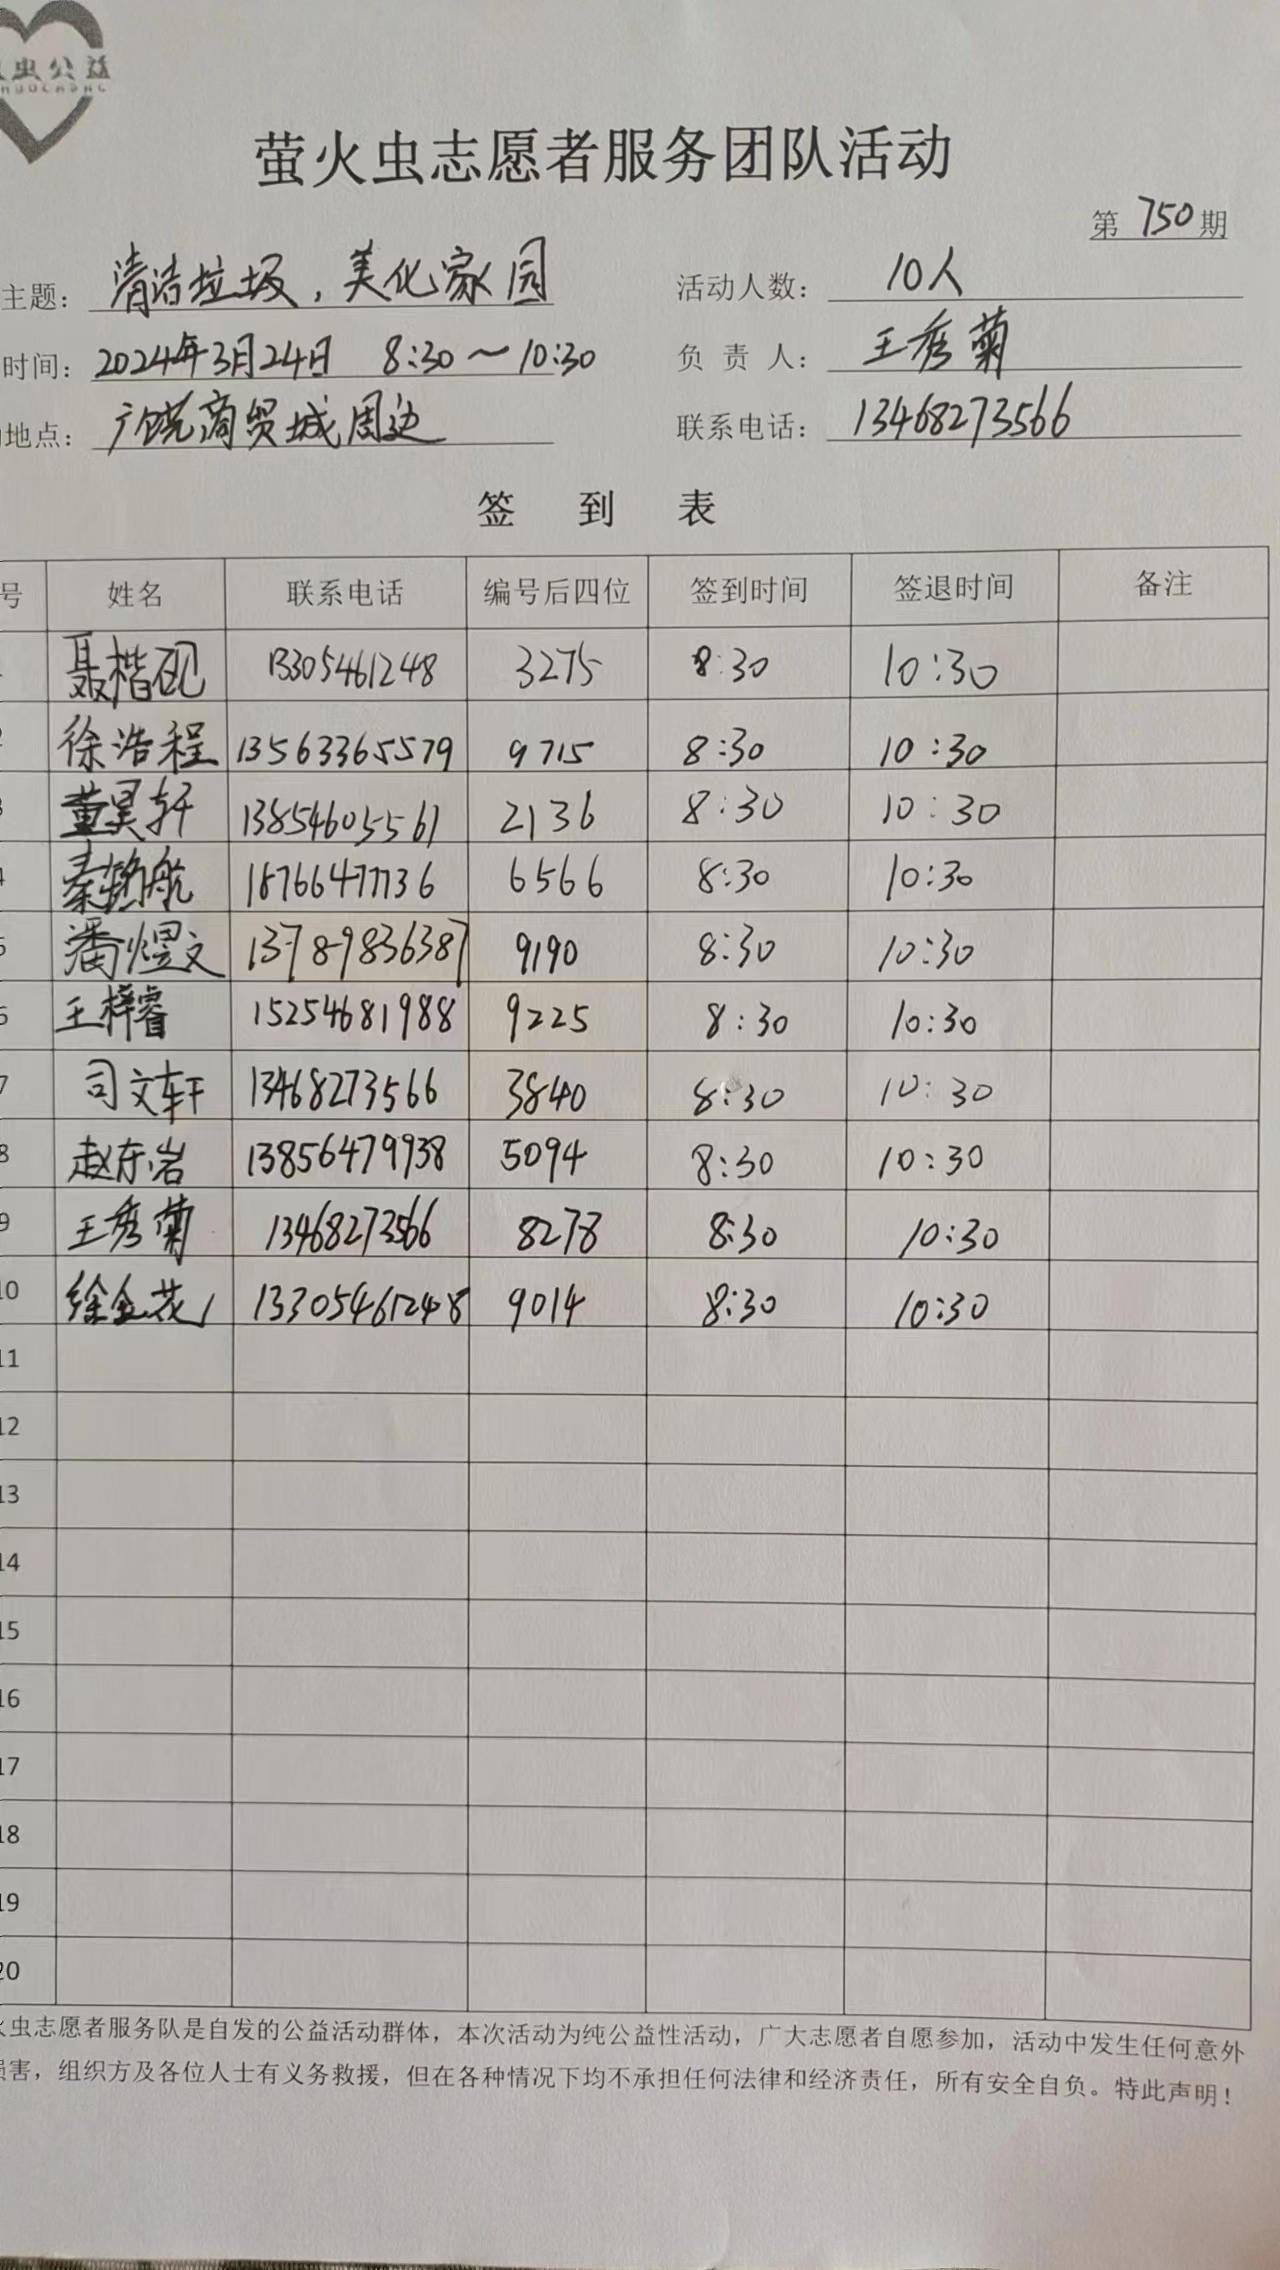 虫公益
萤火虫志愿者服务团队活动
第 750 期
主题: 清洁垃圾,美化家园 活动人数: 10人
时间: 2024年3月24日 8:30~10:30 负责人: 王秀菊
地点: 广饶商贸城周边 联系电话: 13468273566
签到表
号 姓名 联系电话 编号后四位 签到时间 签退时间 备注
聂楷砚 13305461248 3275 8:30 10:30
2 徐浩程 13563365579 9715 8:30 10:30
3 董昊轩 13854605561 2136 8:30 10:30
4 秦翰航 18766477736 6566 8:30 10:30
5 潘煜文 13789836387 9190 8:30 10:30
6 王梓睿 15254681988 9225 8:30 10:30
7 司文轩 13468273566 3840 8:30 10:30
8 赵东岩 13856479938 5094 8:30 10:30
9 王秀菊 13468273566 8278 8:30 10:30
10 徐金花 13305461248 9014 8:30 10:30
11
12
13
14
15
16
17
18
19
20
火虫志愿者服务队是自发的公益活动群体,本次活动为纯公益性活动,广大志愿者自愿参加,活动中发生任何意外
损害,组织方及各位人士有义务救援,但在各种情况下均不承担任何法律和经济责任,所有安全自负。特此声明!